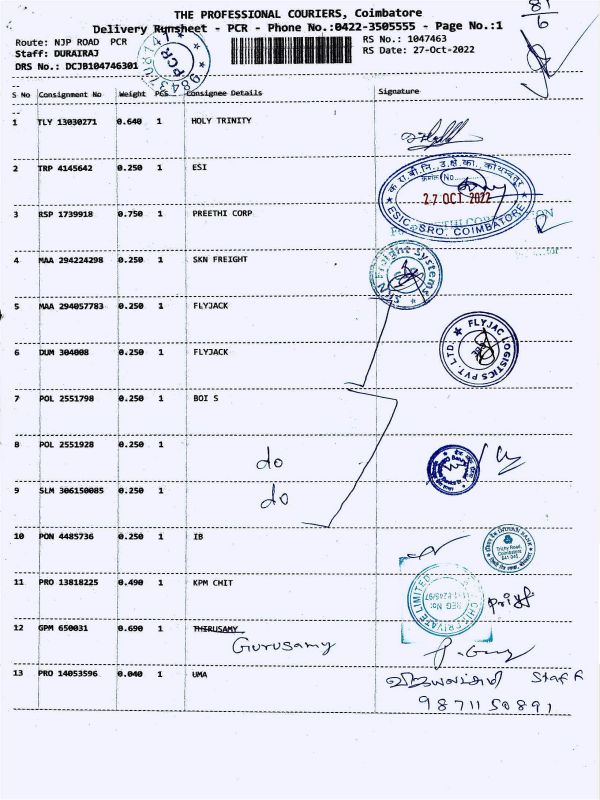 THE PROFESSIONAL COURIERS, Coimbatore
Delivery Runsheet - PCR - Phone No.:0422-3505555 - Page No.:1
81/6
Route: NJP ROAD PCR
RS No.: 1047463
Staff: DURAIRAJ
RS Date: 27-Oct-2022
DRS No.: DCJB104746301
PCR
S No Consignment No Weight PCS Consignee Details Signature
1 TLY 13030271 0.640 1 HOLY TRINITY
2 TRP 4145642 0.250 1 ESI
27 OCT 2022
ESIC, SRO. COIMBATORE
3 RSP 1739918 0.750 1 PREETHI CORP
4 MAA 294224298 0.250 1 SKN FREIGHT
5 MAA 294057783 0.250 1 FLYJACK
6 DUM 304008 0.250 1 FLYJACK
FLYJAC LOGISTICS PVT. LTD.
7 POL 2551798 0.250 1 BOI S
8 POL 2551928 0.250 1 do
9 SLM 306150085 0.250 1 do
10 PON 4485736 0.250 1 IB
INDIAN BANK
Trichy Road,
Coimbatore
11 PRO 13818225 0.490 1 KPM CHIT
12 GPM 650031 0.690 1 THIRUSAMY
Gurusamy
13 PRO 14053596 0.040 1 UMA
Staff
9871150891